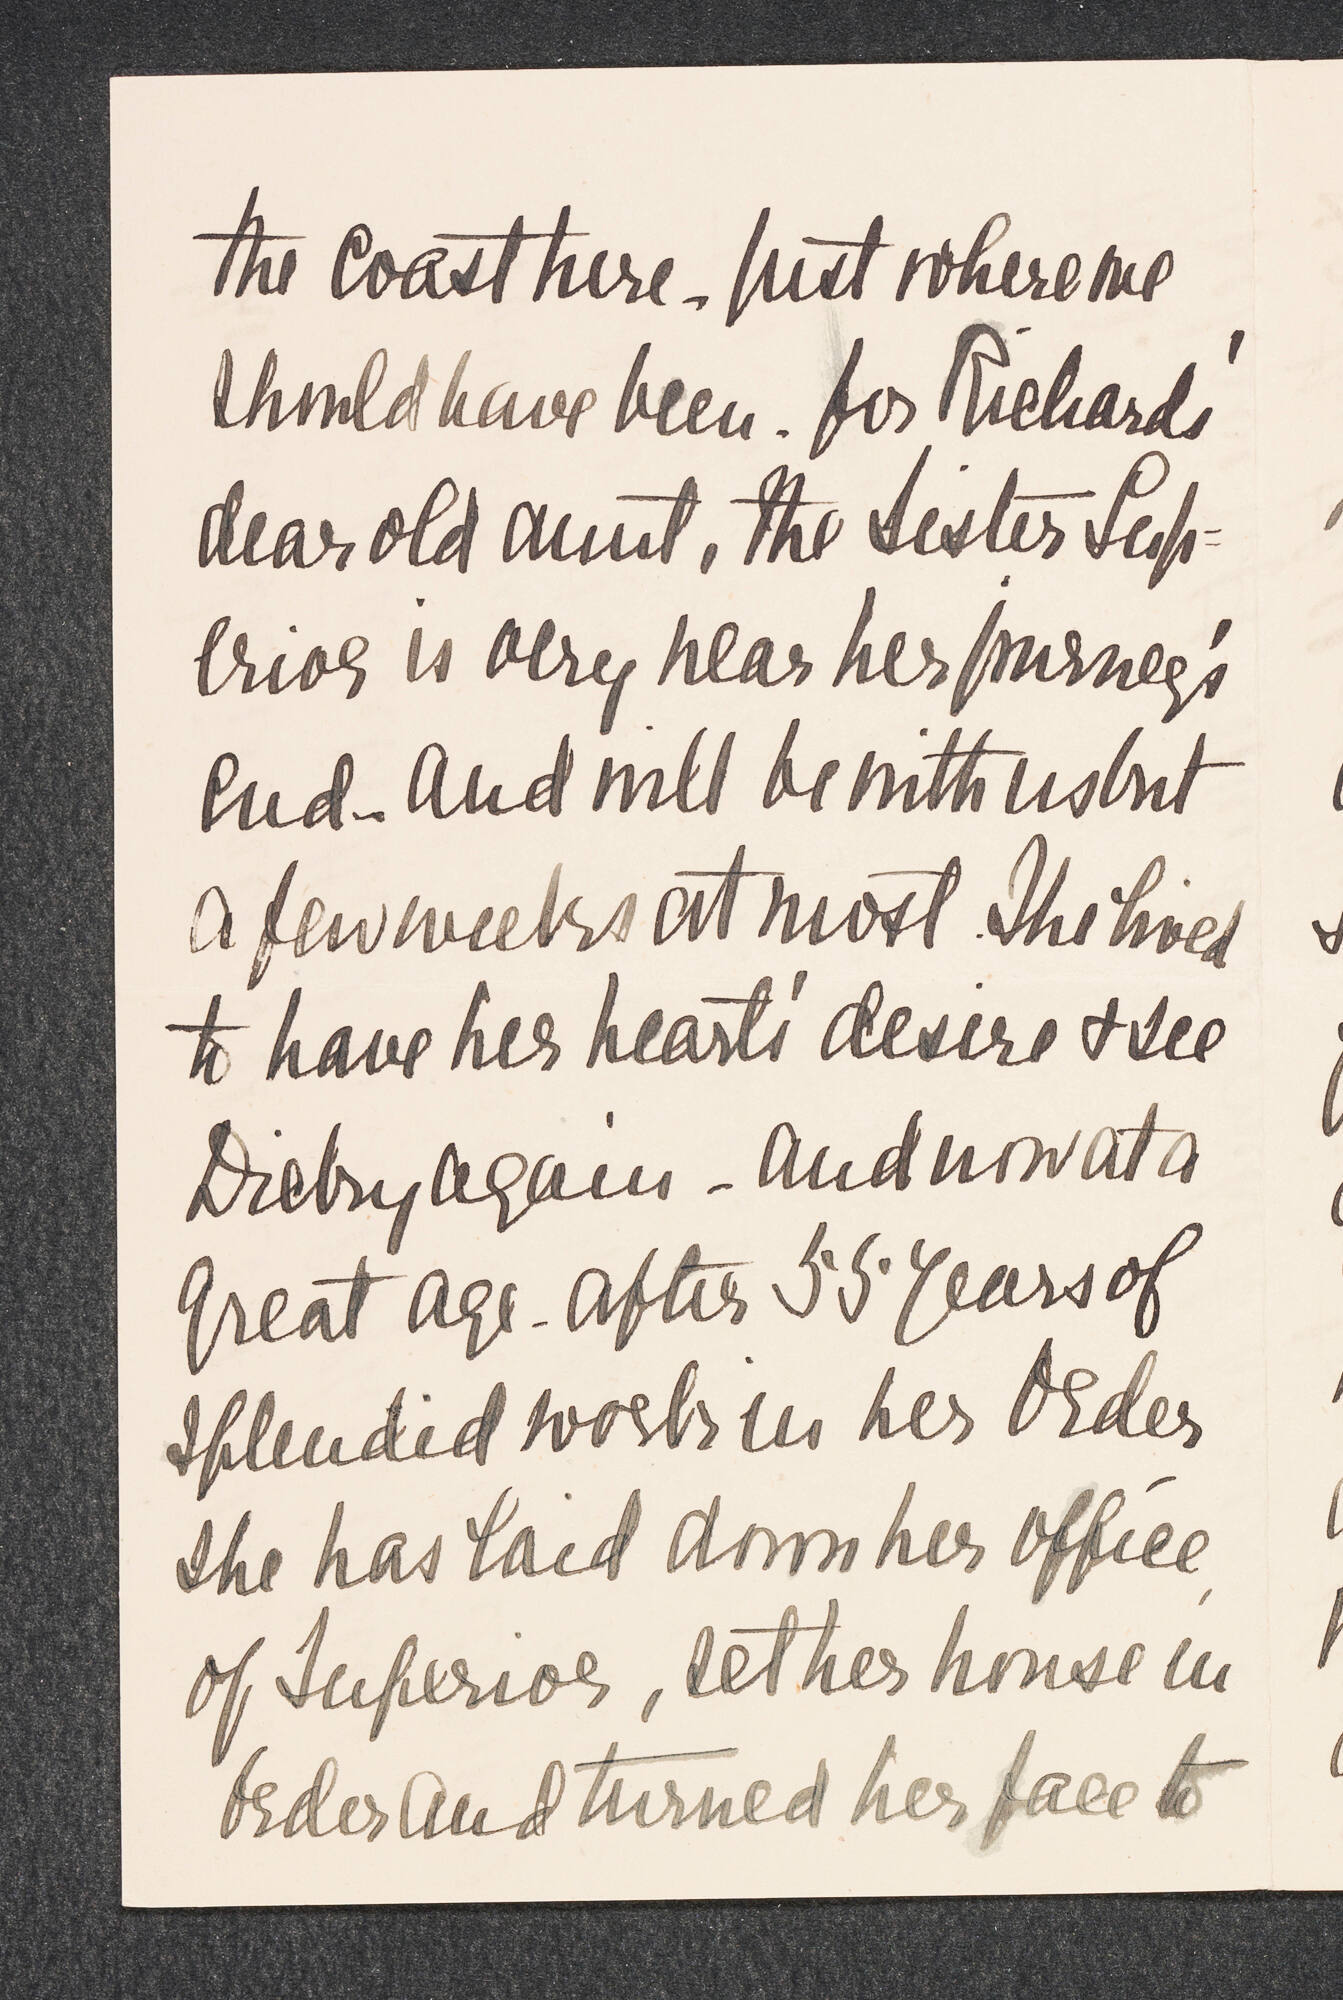 the Coast here - just where we
should have been - for Richards'
dear old aunt, the Sister Sup=
erior is very near her journey's
end - and will be with us but
a few weeks at most. She lived
to have her hearts' desire & see
Dicky again - and now at a
great age - after 55 years of
splendid work in her Order
she has laid down her office,
of Superior, set her house in
Order and turned her face to